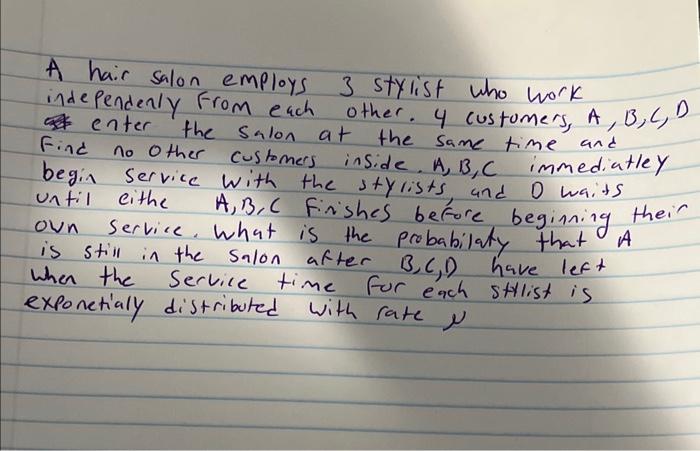 A hair salon employs 3 stylist who work
independenly From each other. 4 customers, A, B, C, D
enter the salon at the same time and
Find no other customers inside. A, B, C immediatley
begin service with the stylists and D waits
until eithe A, B, C Finishes before beginning their
own service. What is the probabilaty that A
is still in the salon after B, C, D have left
when the service time for each stilist is
exponetialy distributed with rate μ